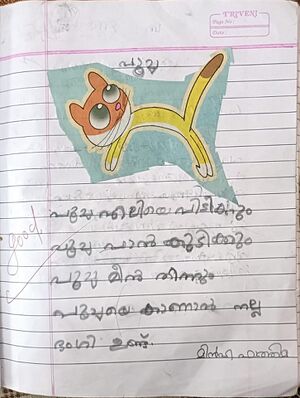 TRIVENI
Page No.:
Date:
പൂച്ച
പൂച്ച എലിയെ പിടിക്കും
good
പൂച്ച പാൽ കുടിക്കും
പൂച്ച മീൻ തിന്നും
പൂച്ചയെ കാണാൻ നല്ല
ഭംഗി ഉണ്ട്.